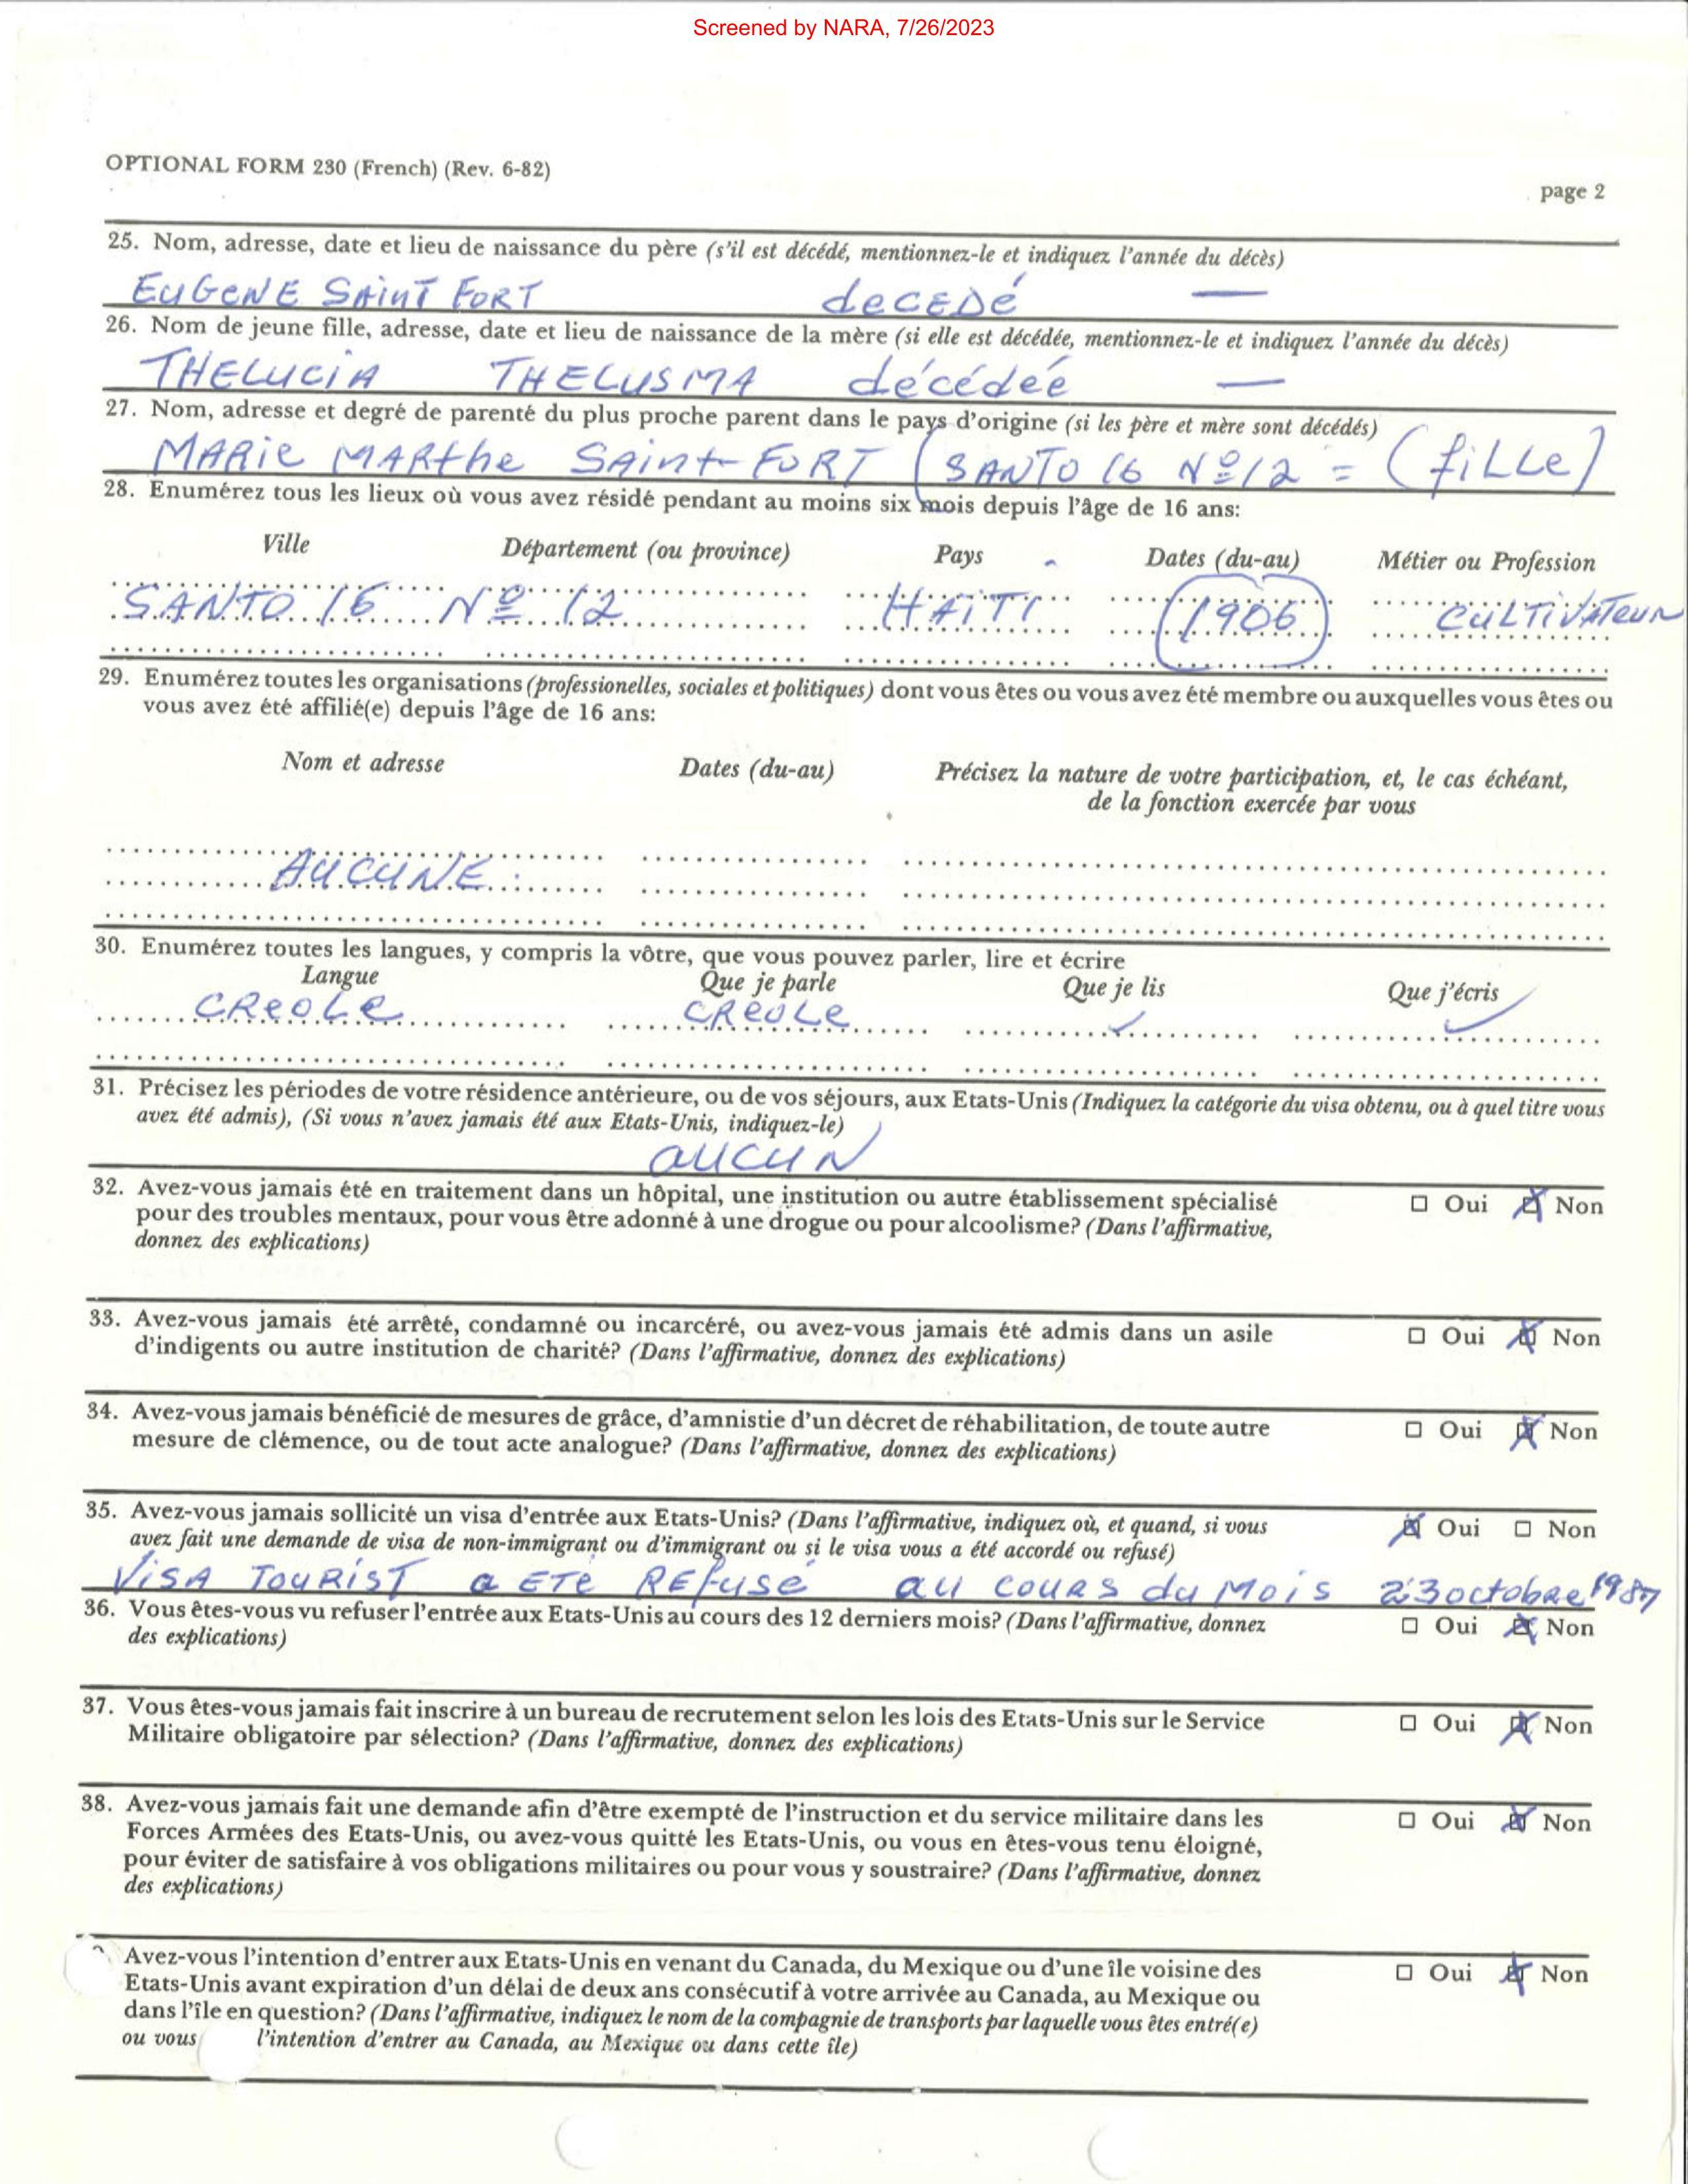 Screened by NARA, 7/26/2023
OPTIONAL FORM 230 (French) (Rev. 6-82)
page 2
25. Nom, adresse, date et lieu de naissance du père (s'il est décédé, mentionnez-le et indiquez l'année du décès)
EUGENE SAINT FORT decEDé —
26. Nom de jeune fille, adresse, date et lieu de naissance de la mère (si elle est décédée, mentionnez-le et indiquez l'année du décès)
THELUCIA THELUSMA décédeé —
27. Nom, adresse et degré de parenté du plus proche parent dans le pays d'origine (si les père et mère sont décédés)
MARie MARthe SAint-FORT (SANTO 16 Nº 12 = (fiLLe)
28. Enumérez tous les lieux où vous avez résidé pendant au moins six mois depuis l'âge de 16 ans:
Ville Département (ou province) Pays Dates (du-au) Métier ou Profession
SANTO 16 Nº 12 HAITI 1906 CULTIVATEUR
29. Enumérez toutes les organisations (professionelles, sociales et politiques) dont vous êtes ou vous avez été membre ou auxquelles vous êtes ou
vous avez été affilié(e) depuis l'âge de 16 ans:
Nom et adresse Dates (du-au) Précisez la nature de votre participation, et, le cas échéant,
de la fonction exercée par vous
AUCUNE
30. Enumérez toutes les langues, y compris la vôtre, que vous pouvez parler, lire et écrire
Langue Que je parle Que je lis Que j'écris
CReoLe CReoLe ✓ ✓
31. Précisez les périodes de votre résidence antérieure, ou de vos séjours, aux Etats-Unis (Indiquez la catégorie du visa obtenu, ou à quel titre vous
avez été admis), (Si vous n'avez jamais été aux Etats-Unis, indiquez-le)
aucun
32. Avez-vous jamais été en traitement dans un hôpital, une institution ou autre établissement spécialisé ☐ Oui ☒ Non
pour des troubles mentaux, pour vous être adonné à une drogue ou pour alcoolisme? (Dans l'affirmative,
donnez des explications)
33. Avez-vous jamais été arrêté, condamné ou incarcéré, ou avez-vous jamais été admis dans un asile ☐ Oui ☒ Non
d'indigents ou autre institution de charité? (Dans l'affirmative, donnez des explications)
34. Avez-vous jamais bénéficié de mesures de grâce, d'amnistie d'un décret de réhabilitation, de toute autre ☐ Oui ☒ Non
mesure de clémence, ou de tout acte analogue? (Dans l'affirmative, donnez des explications)
35. Avez-vous jamais sollicité un visa d'entrée aux Etats-Unis? (Dans l'affirmative, indiquez où, et quand, si vous ☒ Oui ☐ Non
avez fait une demande de visa de non-immigrant ou d'immigrant ou si le visa vous a été accordé ou refusé)
ViSA TOURIST a ETé REfusé au cours du Mois 23 octobre 1987
36. Vous êtes-vous vu refuser l'entrée aux Etats-Unis au cours des 12 derniers mois? (Dans l'affirmative, donnez ☐ Oui ☒ Non
des explications)
37. Vous êtes-vous jamais fait inscrire à un bureau de recrutement selon les lois des Etats-Unis sur le Service ☐ Oui ☒ Non
Militaire obligatoire par sélection? (Dans l'affirmative, donnez des explications)
38. Avez-vous jamais fait une demande afin d'être exempté de l'instruction et du service militaire dans les ☐ Oui ☒ Non
Forces Armées des Etats-Unis, ou avez-vous quitté les Etats-Unis, ou vous en êtes-vous tenu éloigné,
pour éviter de satisfaire à vos obligations militaires ou pour vous y soustraire? (Dans l'affirmative, donnez
des explications)
Avez-vous l'intention d'entrer aux Etats-Unis en venant du Canada, du Mexique ou d'une île voisine des ☐ Oui ☒ Non
Etats-Unis avant expiration d'un délai de deux ans consécutif à votre arrivée au Canada, au Mexique ou
dans l'île en question? (Dans l'affirmative, indiquez le nom de la compagnie de transports par laquelle vous êtes entré(e)
ou vous l'intention d'entrer au Canada, au Mexique ou dans cette île)